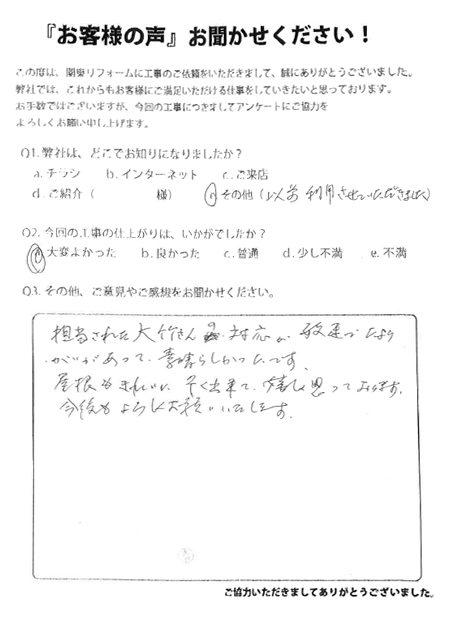 『お客様の声』お聞かせください！
この度は、関東リフォームに工事のご依頼をいただきまして、誠にありがとうございました。
弊社では、これからもお客様にご満足いただける仕事をしていきたいと思っております。
お手数ではございますが、今回の工事につきましてアンケートにご協力を
よろしくお願い申し上げます。
Q1. 弊社は、どこでお知りになりましたか？
a. チラシ　b. インターネット　c. ご来店
d. ご紹介（　　　　様）　e その他（以前 利用させていただきました）
Q2. 今回の工事の仕上がりは、いかがでしたか？
a 大変よかった　b. 良かった　c. 普通　d. 少し不満　e. 不満
Q3. その他、ご意見やご感想をお聞かせください。
担当された大竹さん 対応が、敏速でたより
がいがあって、素晴らしかったです。
屋根もきれいに早く出来て、嬉しく思っております。
今後もよろしくお願いいたします。
ご協力いただきましてありがとうございました。